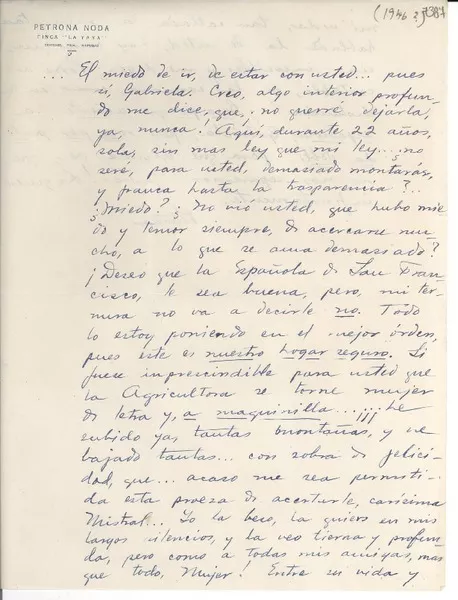 (1946 ?) 387
PETRONA NODA
FINCA "LA YAYA"
.... El miedo de ir, de estar con usted... pues
si, Gabriela. Creo, algo interior profun-
do me dice, que, no querré dejarla,
ya, nunca! Aquí, durante 22 años,
sola, sin mas ley que mi ley... ¿no
seré, para usted, demasiado montaráz,
y franca hasta la trasparencia?..
¿Miedo? ¿No vio usted, que hubo mie
do y temor siempre, de acercarse mu-
cho, a lo que se ama demasiado?
¡Deseo que la Española de San Fran-
cisco, le sea buena, pero, mi ter-
nura no va a decirle no. Todo
lo estoy poniendo en el mejor órden,
pues éste es nuestro hogar seguro. Si
fuese imprescindible para usted que
la Agricultora se torne mujer
de letra y, a maquinilla...¡¡¡¡ he
subido ya, tantas montañas, y he
bajado tantas... con sobra de felici-
dad, que... acaso me sea permiti-
da esta proeza de acertarle, carísima
Mistral... Yo la beso, la quiero en mis
largos silencios, y la veo tierna y profun-
da, pero como a todas mis amigas, mas
que todo, Mujer! Entre su vida y